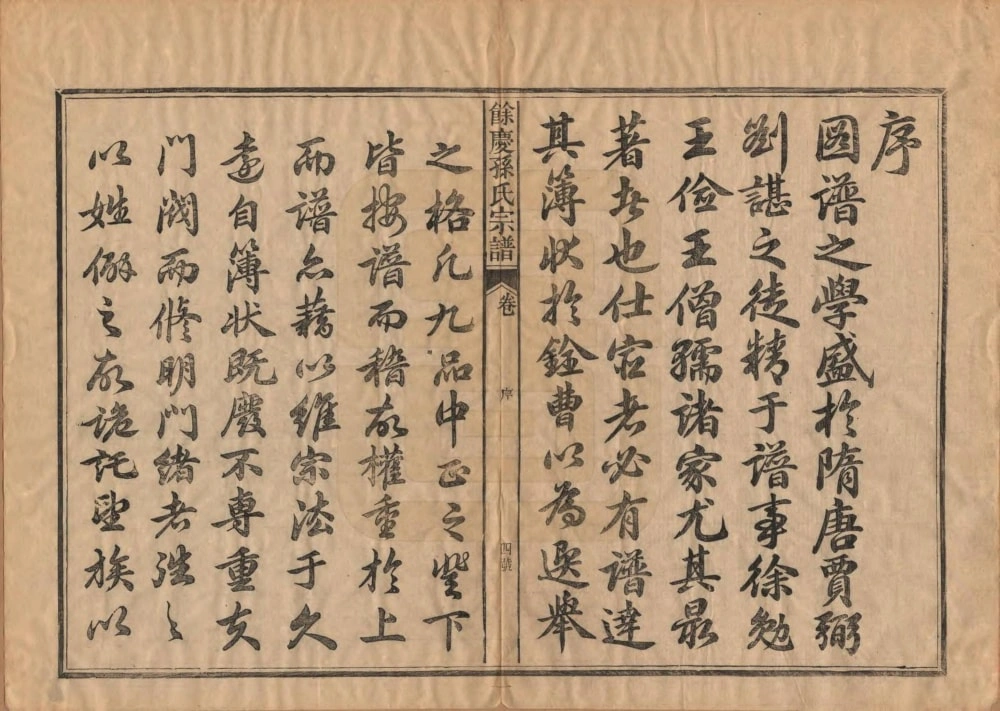 序
圖譜之學盛於隋唐賈弼
劉諶之徒精于譜事徐勉
王儉王僧孺諸家尤其最
著者也仕宦者必有譜達
其簿狀於銓曹以為選舉
餘慶孫氏宗譜
卷
序
四號
之格凡九品中正之堂下
皆按譜而稽故權重於上
而譜亦藉以維宗法于久
遠自簿狀既廢不專重支
門閥而修明門緒者
以姓之故詭託望族以